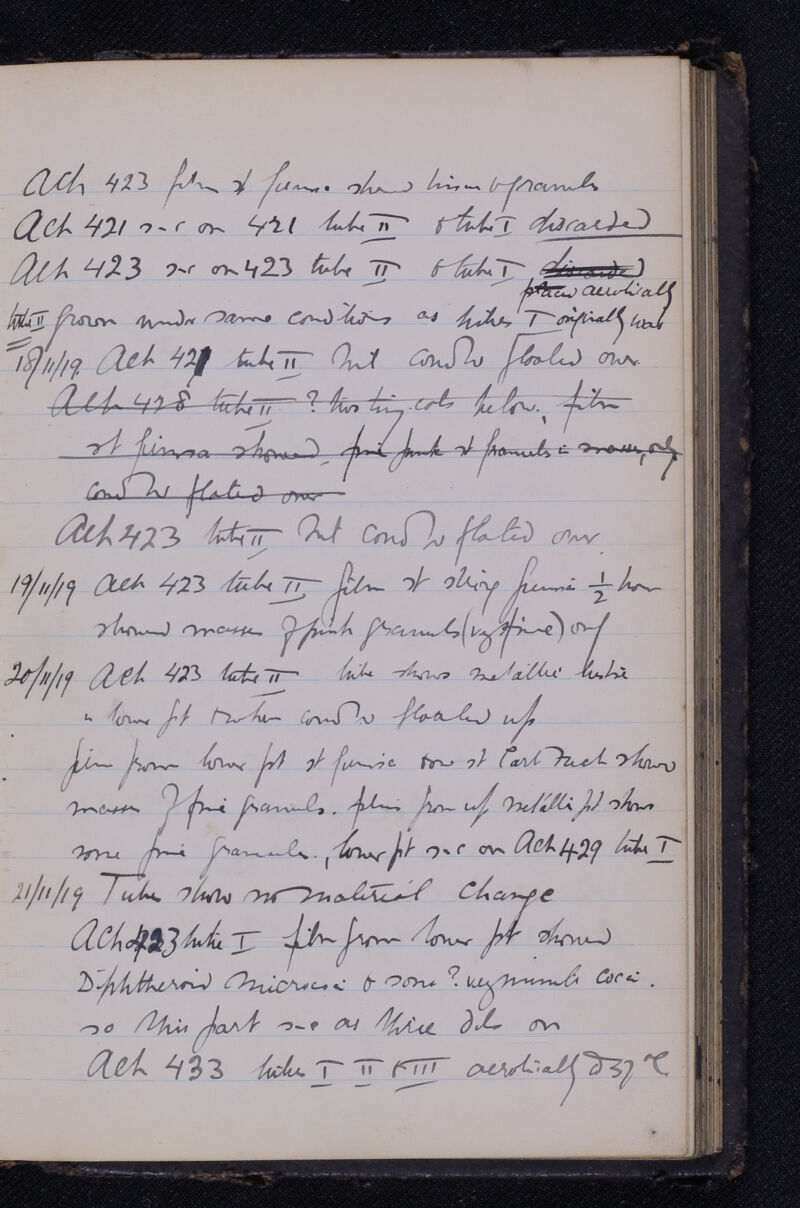 Ach 423 film st giemsa showed & granules
Ach 421 s-c on 421 tube II & tube I discarded
Ach 423 s-c on 423 tube II & tube I discarded
placed aerobically
tube II grown under same conditions as tubes I originally was
18/11/19. Ach 421 tube II Nil cond W floated over
Ach 428 tube II ? cols below, film
st giemsa showed fine pink st granules in masses, only
cond W floated over
Ach 423 tube II Nil cond W floated over
19/11/19 Ach 423 tube II film st giemsa 1/2 hour
showed masses of pink granules (very fine) only
20/11/19 Ach 423 tube II tube shows metallic lustre
in lower pt & when cond W floated up
film from lower pt st giemsa & one st Carb Fuch shows
masses of fine granules. film from up metallic pt shows
some fine granules, lower pt s-c on Ach 429 tube I
21/11/19 Tubes show no material change
Ach 423 tube I film from lower pt showed
Diphtheroid & some ? very minute cocci.
so this part s-c as three dils on
Ach 433 tubes I II & III aerobically @ 37°C.